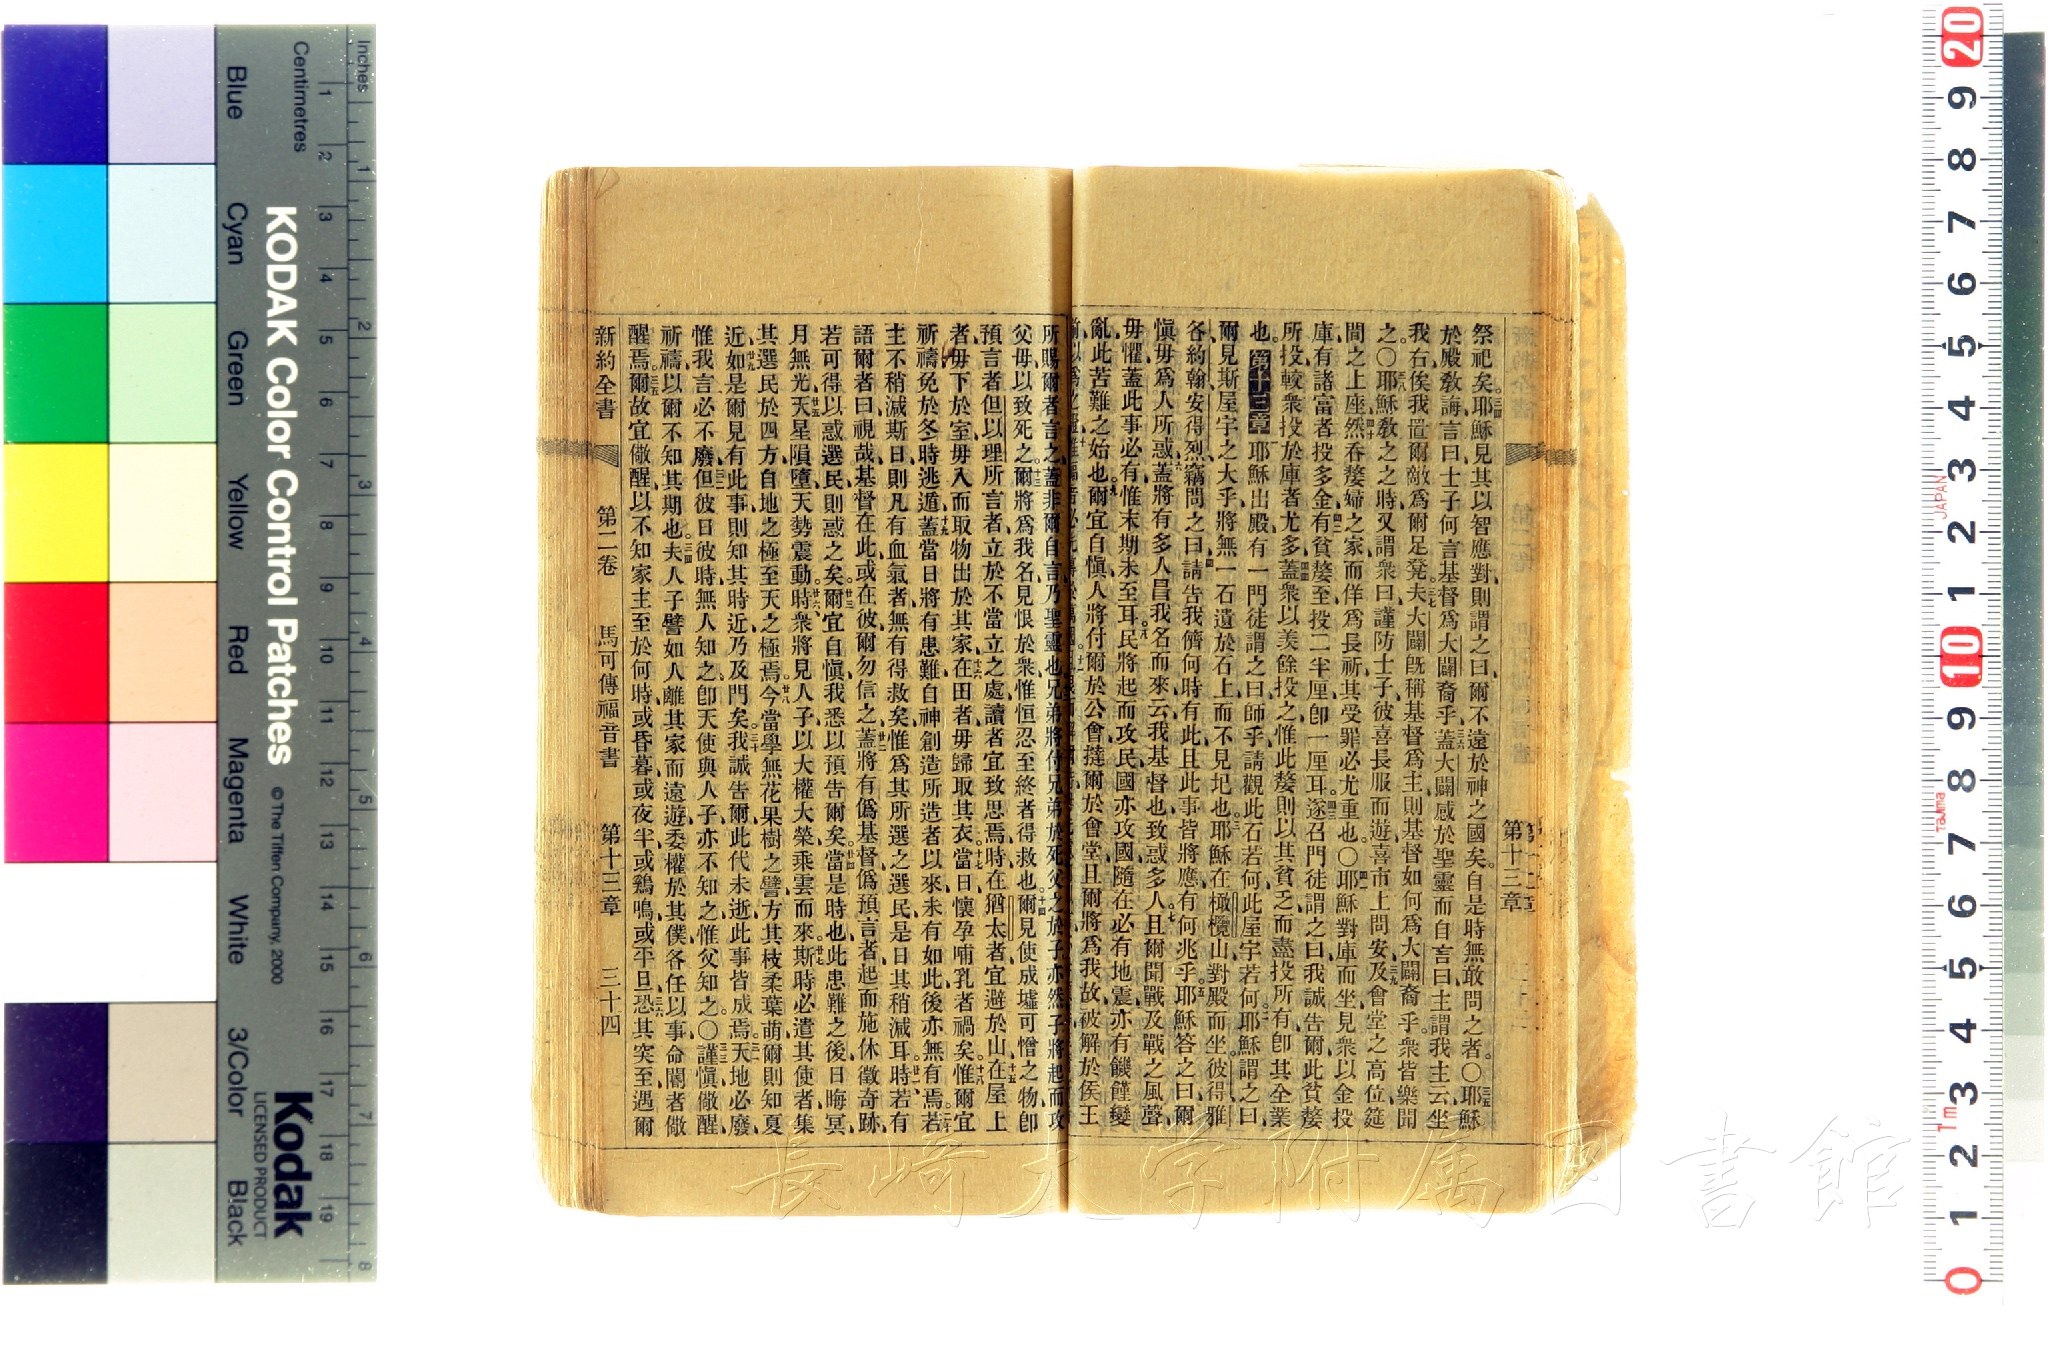 祭祀矣耶穌見其以智應對則謂之曰爾不遠於神之國矣自是時無敢問之者〇耶穌
於殿敎誨言曰士子何言基督爲大闢裔乎蓋大闢感於聖靈而自言曰主謂我主云坐
我右俟我置爾敵爲爾足凳夫大闢旣稱基督爲主則基督如何爲大闢裔乎衆皆樂聞
之〇耶穌敎之之時又謂衆曰謹防士子彼喜長服而遊喜市上問安及會堂之高位筵
間之上座然吞嫠婦之家而佯爲長祈其受罪必尤重也〇耶穌對庫而坐見衆以金投
庫有諸富者投多金有貧嫠至投二半厘卽一厘耳遂召門徒謂之曰我誠告爾此貧嫠
所投較衆投於庫者尤多蓋衆以羨餘投之惟此嫠則以其貧乏而盡投所有卽其全業
也第十三章耶穌出殿有一門徒謂之曰師乎請觀此石若何此屋宇若何耶穌謂之曰
爾見斯屋宇之大乎將無一石遺於石上而不見圮也耶穌在橄欖山對殿而坐彼得雅
各約翰安得烈竊問之曰請告我儕何時有此且此事皆將應有何兆乎耶穌答之曰爾
愼毋爲人所惑蓋將有多人冒我名而來云我基督也致惑多人且爾聞戰及戰之風聲
毋懼蓋此事必有惟末期未至耳民將起而攻民國亦攻國隨在必有地震亦有饑饉變
亂此苦難之始也爾宜自愼人將付爾於公會撻爾於會堂且爾將爲我故被解於侯王
所賜爾者言之蓋非爾自言乃聖靈也兄弟將付兄弟於死父之於子亦然子將起而攻
父母以致死之爾將爲我名見恨於衆惟恒忍至終者得救也爾見使成墟可憎之物卽
預言者但以理所言者立於不當立之處讀者宜致思焉時在猶太者宜避於山在屋上
者毋下於室毋入而取物出於其家在田者毋歸取其衣當日懷孕哺乳者禍矣惟爾宜
祈禱免於冬時逃遁蓋當日將有患難自神創造所造者以來未有如此後亦無有焉若
主不稍減斯日則凡有血氣者無有得救矣惟爲其所選之選民是日其稍減耳時若有
語爾者曰視哉基督在此或在彼爾勿信之蓋將有僞基督僞預言者起而施休徵奇跡
若可得以惑選民則惑之矣爾宜自愼我悉以預告爾矣當是時也此患難之後日晦冥
月無光天星隕墮天勢震動時衆將見人子以大權大榮乘雲而來斯時必遣其使者集
其選民於四方自地之極至天之極焉今當學無花果樹之譬方其枝柔葉萌爾則知夏
近如是爾見有此事則知其時近乃及門矣我誠告爾此代未逝此事皆成焉天地必廢
惟我言必不廢但彼日彼時無人知之卽天使與人子亦不知之惟父知之〇謹愼儆醒
祈禱以爾不知其期也夫人子譬如人離其家而遠遊委權於其僕各任以事命閽者儆
醒焉爾故宜儆醒以不知家主至於何時或昏暮或夜半或鷄鳴或平旦恐其突至遇爾
新約全書 第二卷 馬可傳福音書 第十三章 三十四
第十三章
長崎大学附属図書館
Inches
Centimetres
KODAK Color Control Patches
© The Tiffen Company, 2000
Kodak
LICENSED PRODUCT
Blue
Cyan
Green
Yellow
Red
Magenta
White
3/Color
Black
JAPAN
Tajima